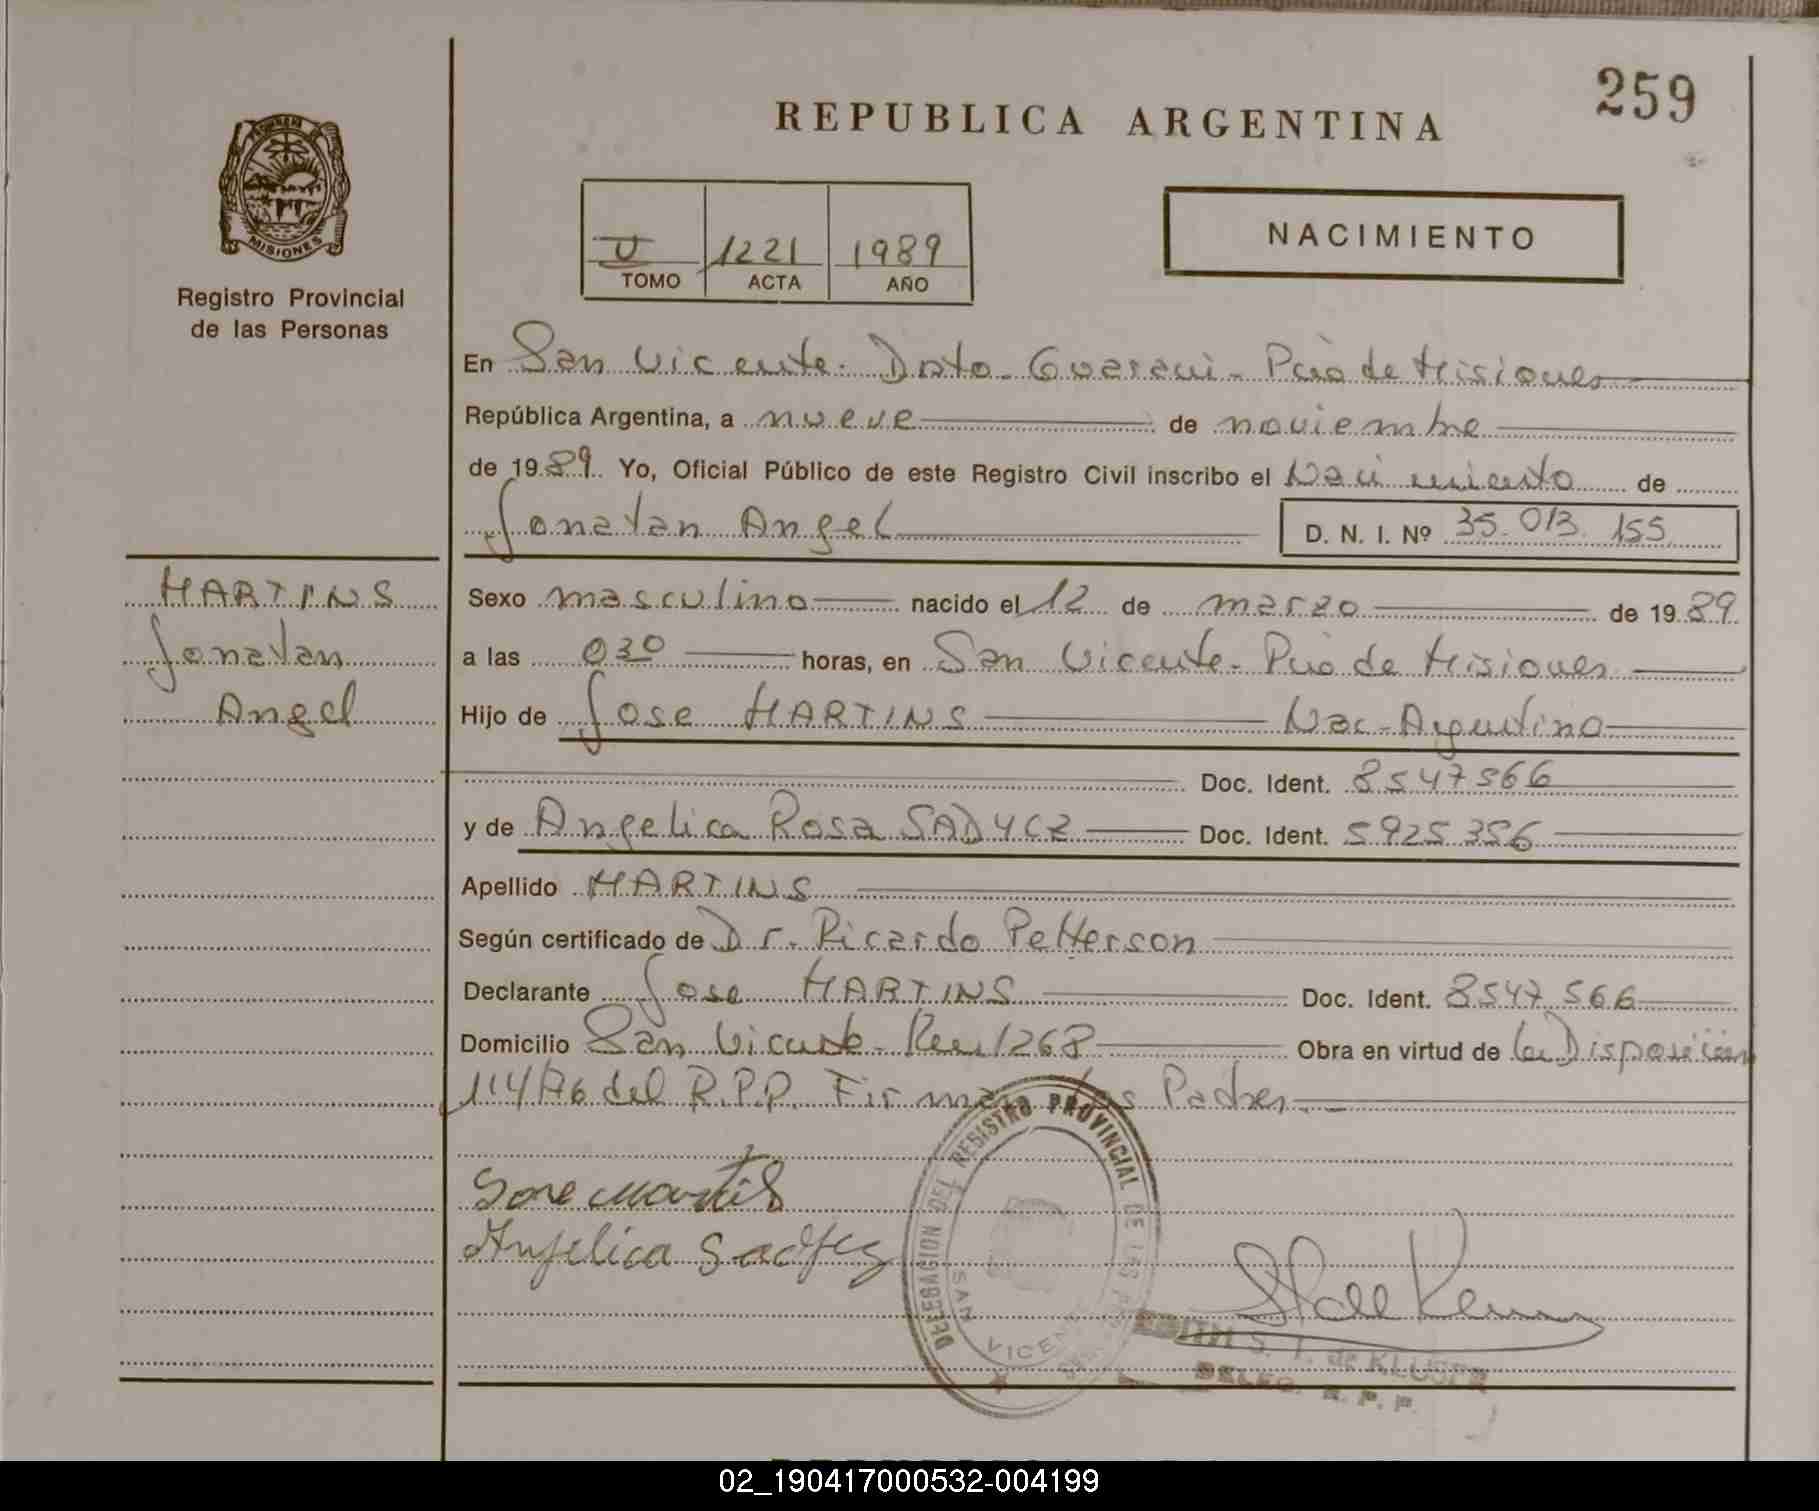 259
REPUBLICA ARGENTINA
MISIONES
Registro Provincial
de las Personas
U 1221 1989
TOMO ACTA AÑO
NACIMIENTO
En San Vicente. Dpto. Guaraní - Pcia de Misiones
República Argentina, a nueve de noviembre
de 1989. Yo, Oficial Público de este Registro Civil inscribo el Nacimiento de
Jonatan Angel D. N. I. Nº 35.013.155
MARTINS
Jonatan
Angel
Sexo masculino nacido el 12 de marzo de 1989
a las 030 horas, en San Vicente - Pcia de Misiones
Hijo de Jose MARTINS Nac - Argentino
Doc. Ident. 8547566
y de Angelica Rosa SADYCZ Doc. Ident. 5925356
Apellido MARTINS
Según certificado de Dr. Ricardo Petterson
Declarante Jose MARTINS Doc. Ident. 8547566
Domicilio San Vicente - 1268 Obra en virtud de la Disposición
114/76 del R.P.P. Firman los Padres.
Jose Martins
Angelica Sadycz
DELEGACION DEL REGISTRO PROVINCIAL DE LAS
SAN VICENTE
EDITH S. T. de
DELEG. R. P. P.
02_190417000532-004199